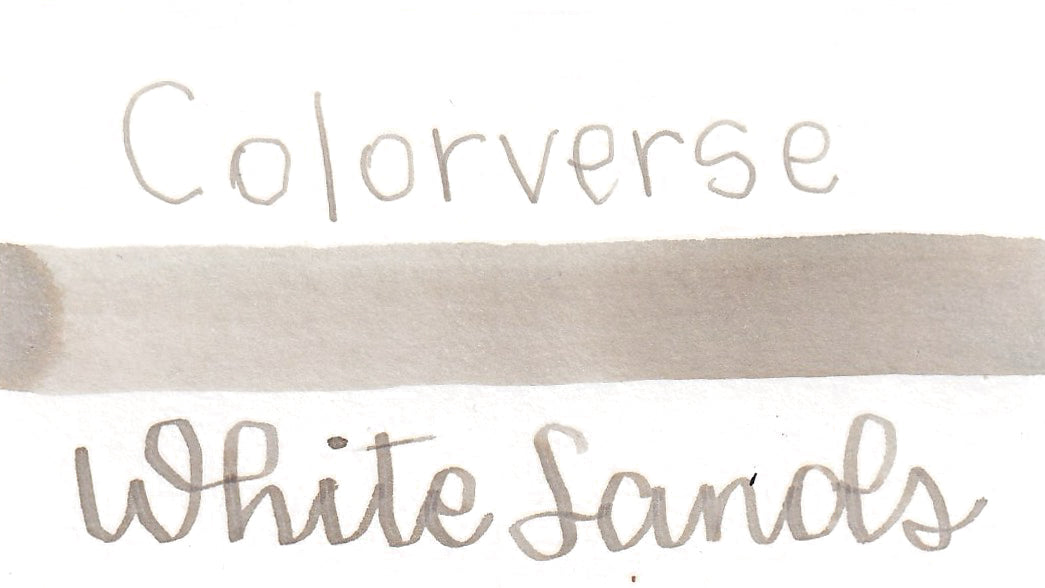 Colorverse
White Sands